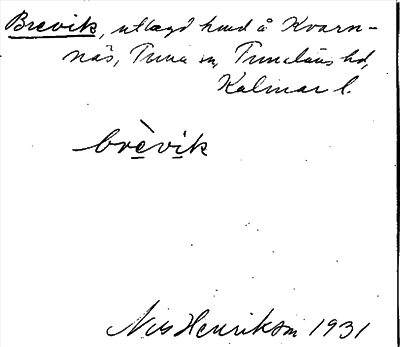 Brevik, utlagd hmd å Kvarn-
näs, Tuna sn, Tunaläns hd,
Kalmar l.
brèvik
Nils Henrikson 1931